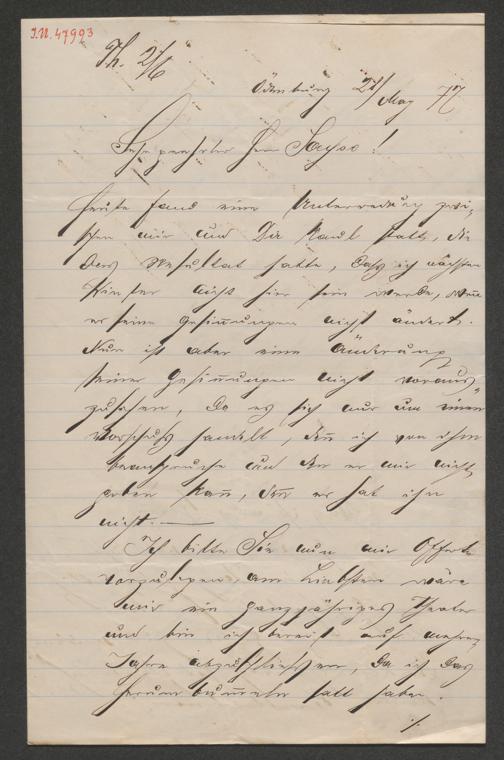 I.N. 47993
Th. 2/6
Ödenburg 28/May 77
Sehr geehrter Herr Sachse!
Heute fand eine Unterredung zwi-
schen mir und Dir. Raul statt, die
das Resultat hatte, daß ich nächsten
Winter nicht hier sein werde, wenn
er seine Gesinnungen nicht ändert.
Nun ist aber eine Änderung
seiner Gesinnungen nicht voraus-
zusehen, da es sich nur um einen
Vorschuß handelt, den ich von ihm
beanspruche und den er mir nicht
geben kann, denn er hat ihn
nicht. —
Ich bitte Sie nun mir Offerte
vorzulegen am Liebsten wäre
mir ein ganzjähriges Theater
und bin ich bereit auf mehrere
Jahre abzuschließen, da ich das
herumbummeln satt habe.
./.